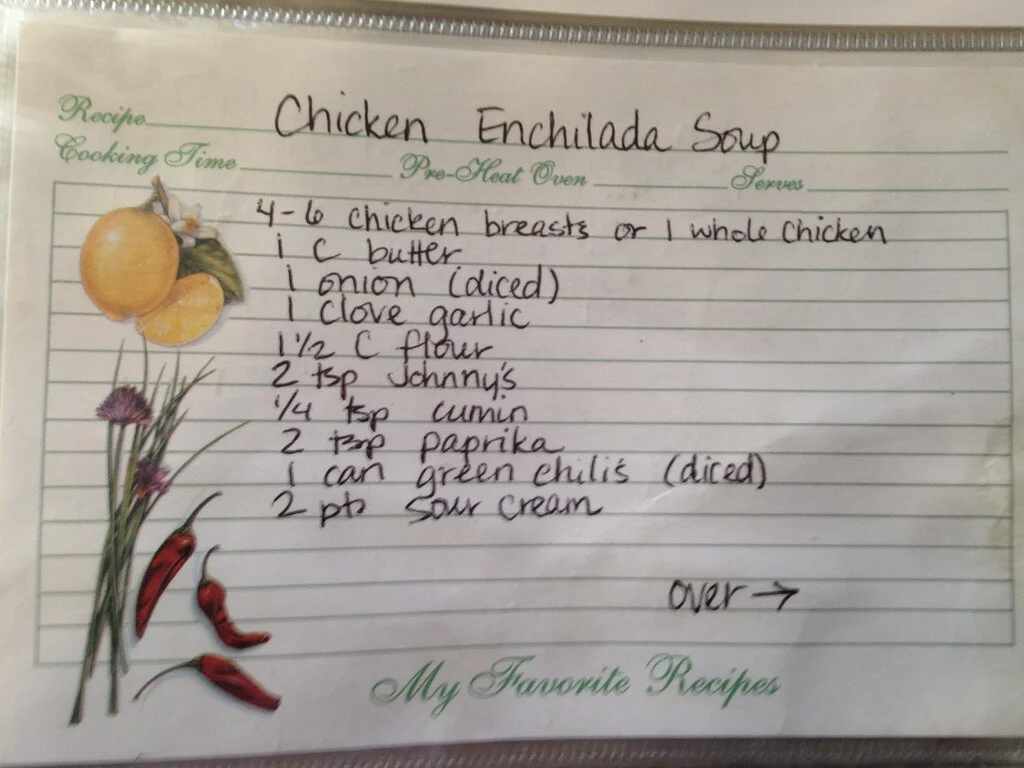 Recipe Chicken Enchilada Soup
Cooking Time Pre-Heat Oven Serves
4-6 chicken breasts or 1 whole chicken
1 C butter
1 onion (diced)
1 clove garlic
1 1/2 C flour
2 tsp Johnny's
1/4 tsp cumin
2 tsp paprika
1 can green chili's (diced)
2 pts sour cream
over →
My Favorite Recipes